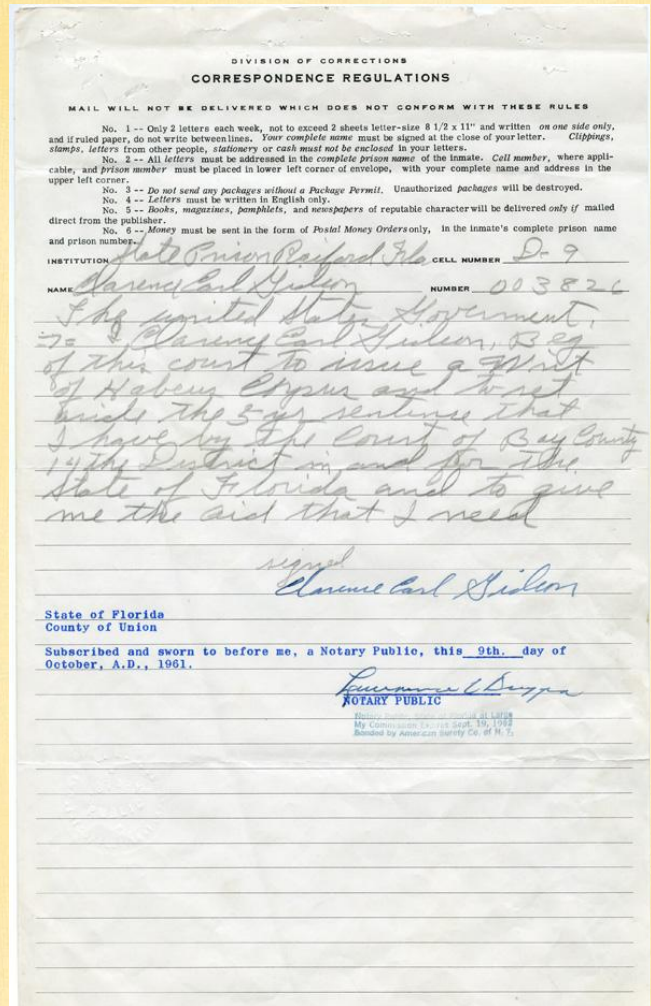 DIVISION OF CORRECTIONS
CORRESPONDENCE REGULATIONS
MAIL WILL NOT BE DELIVERED WHICH DOES NOT CONFORM WITH THESE RULES
No. 1 -- Only 2 letters each week, not to exceed 2 sheets letter-size 8 1/2 x 11" and written on one side only,
and if ruled paper, do not write between lines. Your complete name must be signed at the close of your letter. Clippings,
stamps, letters from other people, stationery or cash must not be enclosed in your letters.
No. 2 -- All letters must be addressed in the complete prison name of the inmate. Cell number, where appli-
cable, and prison number must be placed in lower left corner of envelope, with your complete name and address in the
upper left corner.
No. 3 -- Do not send any packages without a Package Permit. Unauthorized packages will be destroyed.
No. 4 -- Letters must be written in English only.
No. 5 -- Books, magazines, pamphlets, and newspapers of reputable character will be delivered only if mailed
direct from the publisher.
No. 6 -- Money must be sent in the form of Postal Money Orders only, in the inmate's complete prison name
and prison number.
INSTITUTION State Prison Raiford Fla CELL NUMBER D-9
NAME Clarence Earl Gideon NUMBER 003826
The united States Goverment,
I, Clarence Earl Gideon, Beg
of this court to issue a Writ
of Habeus Corpus and to set
aside the 5 yr sentence that
I have by the Court of Bay County
14th District in and for the
State of Florida and to give
me the aid that I need
signed
Clarence Earl Gideon
State of Florida
County of Union
Subscribed and sworn to before me, a Notary Public, this 9th. day of
October, A.D., 1961.
NOTARY PUBLIC
Notary Public, State of Florida at Large
My Commission Expires Sept. 19, 1962
Bonded by American Surety Co. of N. Y.